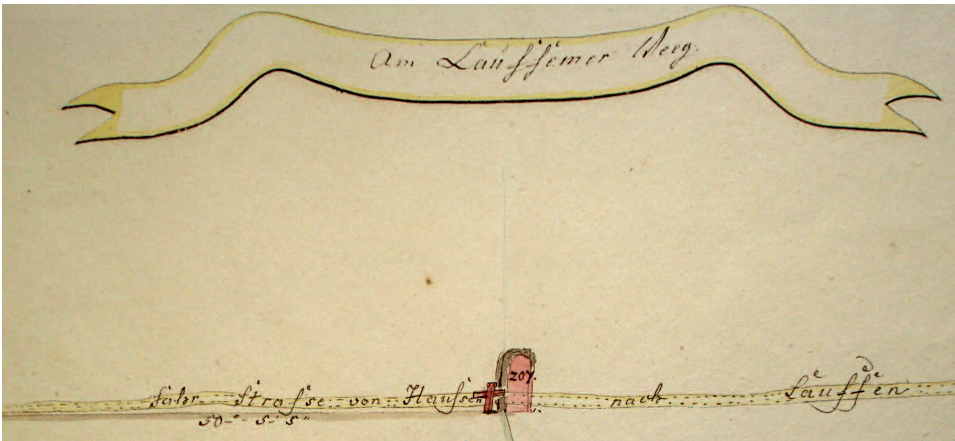 Am Lauffemer Weeg.
207.
Fahr Strasse von Haussen nach Lauffen
50-" 5-' 5"